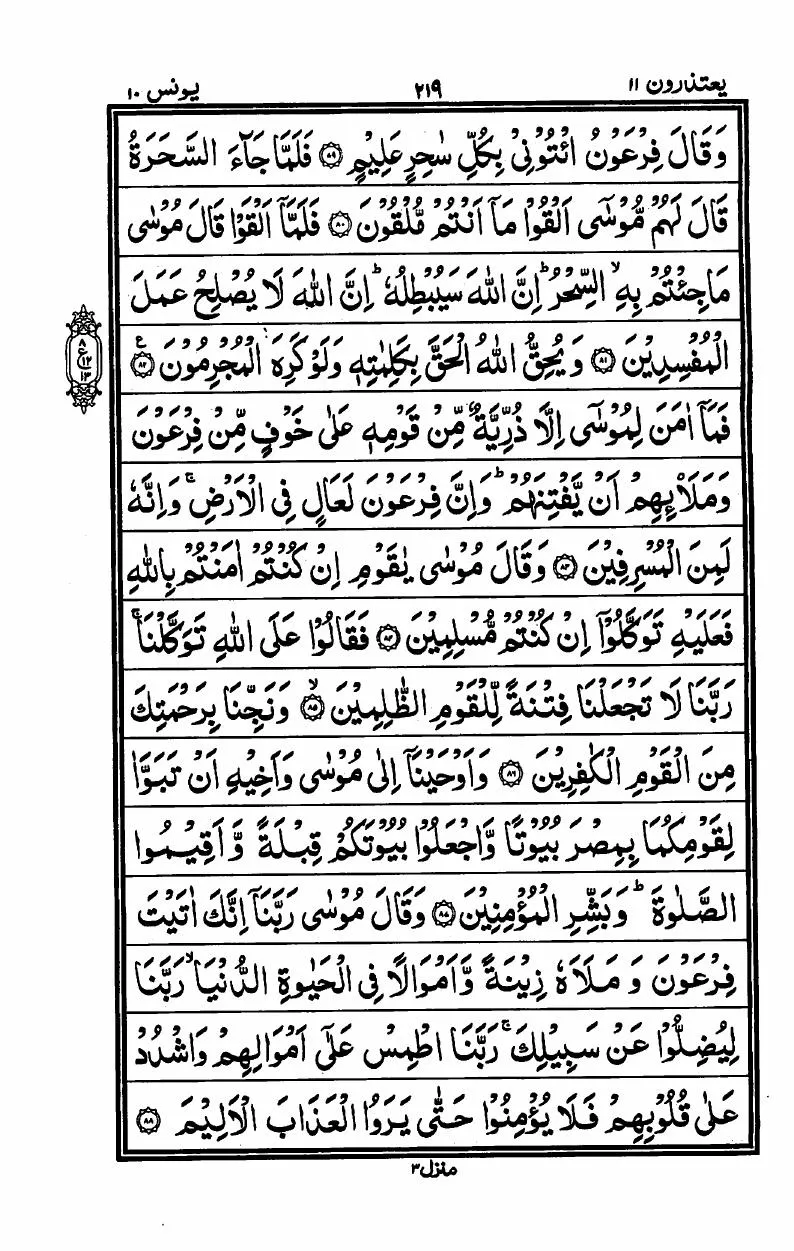 یعتذرون ۱۱
۲۱۹
یونس ۱۰
وَقَالَ فِرْعَوْنُ ائْتُوْنِیْ بِكُلِّ سٰحِرٍ عَلِیْمٍ ﴿۷۹﴾ فَلَمَّا جَآءَ السَّحَرَةُ
قَالَ لَهُمْ مُّوْسٰۤی اَلْقُوْا مَاۤ اَنْتُمْ مُّلْقُوْنَ ﴿۸۰﴾ فَلَمَّاۤ اَلْقَوْا قَالَ مُوْسٰی
مَا جِئْتُمْ بِهِ ۙ السِّحْرُ ؕ اِنَّ اللّٰهَ سَیُبْطِلُهٗ ؕ اِنَّ اللّٰهَ لَا یُصْلِحُ عَمَلَ
الْمُفْسِدِیْنَ ﴿۸۱﴾ وَیُحِقُّ اللّٰهُ الْحَقَّ بِكَلِمٰتِهٖ وَلَوْ كَرِهَ الْمُجْرِمُوْنَ ﴿۸۲﴾ ع
۸ ع ۱۲ ۱۳
فَمَاۤ اٰمَنَ لِمُوْسٰۤی اِلَّا ذُرِّیَّةٌ مِّنْ قَوْمِهٖ عَلٰی خَوْفٍ مِّنْ فِرْعَوْنَ
وَمَلَا۟ئِهِمْ اَنْ یَّفْتِنَهُمْ ؕ وَاِنَّ فِرْعَوْنَ لَعَالٍ فِی الْاَرْضِ ۚ وَاِنَّهٗ
لَمِنَ الْمُسْرِفِیْنَ ﴿۸۳﴾ وَقَالَ مُوْسٰی یٰقَوْمِ اِنْ كُنْتُمْ اٰمَنْتُمْ بِاللّٰهِ
فَعَلَیْهِ تَوَكَّلُوْۤا اِنْ كُنْتُمْ مُّسْلِمِیْنَ ﴿۸۴﴾ فَقَالُوْا عَلَی اللّٰهِ تَوَكَّلْنَا ۚ
رَبَّنَا لَا تَجْعَلْنَا فِتْنَةً لِّلْقَوْمِ الظّٰلِمِیْنَ ﴿۸۵﴾ ۙ وَنَجِّنَا بِرَحْمَتِكَ
مِنَ الْقَوْمِ الْكٰفِرِیْنَ ﴿۸۶﴾ وَاَوْحَیْنَاۤ اِلٰی مُوْسٰی وَاَخِیْهِ اَنْ تَبَوَّاٰ
لِقَوْمِكُمَا بِمِصْرَ بُیُوْتًا وَّاجْعَلُوْا بُیُوْتَكُمْ قِبْلَةً وَّاَقِیْمُوا
الصَّلٰوةَ ؕ وَبَشِّرِ الْمُؤْمِنِیْنَ ﴿۸۷﴾ وَقَالَ مُوْسٰی رَبَّنَاۤ اِنَّكَ اٰتَیْتَ
فِرْعَوْنَ وَ مَلَاَهٗ زِیْنَةً وَّاَمْوَالًا فِی الْحَیٰوةِ الدُّنْیَا ۙ رَبَّنَا
لِیُضِلُّوْا عَنْ سَبِیْلِكَ ۚ رَبَّنَا اطْمِسْ عَلٰۤی اَمْوَالِهِمْ وَاشْدُدْ
عَلٰی قُلُوْبِهِمْ فَلَا یُؤْمِنُوْا حَتّٰی یَرَوُا الْعَذَابَ الْاَلِیْمَ ﴿۸۸﴾
منزل ۳